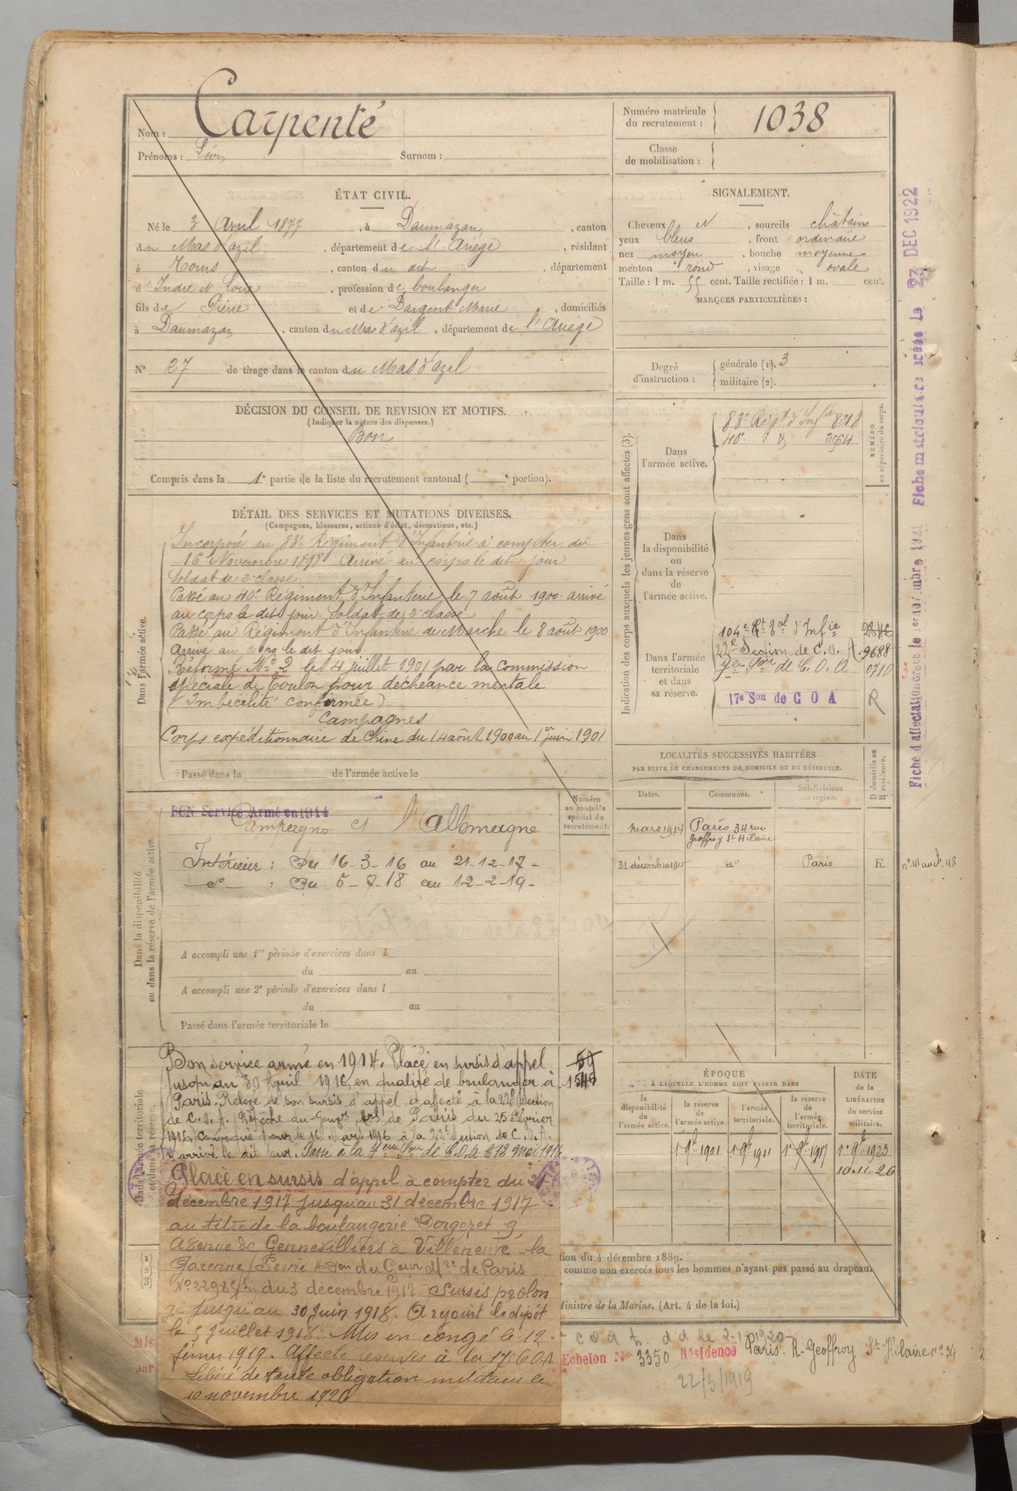 Nom : Carpenté
Prénoms : Léon Surnom :
Numéro matricule du recrutement : 1038
Classe de mobilisation :
ÉTAT CIVIL.
Né le 3 Avril 1877, à Daumazan, canton
du Mas d'azil, département de l'Ariège, résidant
à Tours, canton du dit, département
d'Indre et Loire, profession de boulanger
fils de Pierre et de Dargent Marie, domiciliés
à Daumazan, canton du Mas d'azil, département de l'Ariège
N° 27 de tirage dans le canton du Mas d'azil
SIGNALEMENT.
Cheveux N, sourcils châtains
yeux bleus, front ordinaire
nez moyen, bouche moyenne
menton rond, visage ovale
Taille : 1 m. 55 cent. Taille rectifiée : 1 m. cent.
MARQUES PARTICULIÈRES :
Degré d'instruction : générale (1). 3
militaire (2).
DÉCISION DU CONSEIL DE REVISION ET MOTIFS.
(Indiquer la nature des dispenses.)
Bon
Compris dans la 1e partie de la liste du recrutement cantonal ( e portion).
DÉTAIL DES SERVICES ET MUTATIONS DIVERSES.
(Campagnes, blessures, actions d'éclat, décorations, etc.)
Dans l'armée active.
Incorporé au 83e Régiment d'Infanterie à compter du
16 Novembre 1898 Arrivé au corps le dit jour
Soldat de 2e classe
Passé au 40e Régiment d'Infanterie le 7 août 1900 arrivé
au corps le dit jour, Soldat de 2e classe
Passé au Régiment d'Infanterie de Marche le 8 août 1900
Arrivé au corps le dit jour
Réformé No 2 le 4 juillet 1901 par la commission
spéciale de Toulon pour déchéance mentale
(Imbécilité confirmée)
Campagnes
Corps expéditionnaire de Chine du 14 août 1900 au 1er juin 1901
Passé dans la de l'armée active le
Indication des corps auxquels les jeunes gens sont affectés (3).
NUMÉRO au répertoire du corps.
Dans l'armée active.
83e Régt d'Infie 8218
40e 3564
Dans la disponibilité ou dans la réserve de l'armée active.
Dans l'armée territoriale et dans sa réserve.
104e Rt Tal d'Infie
22e Section de C.O.A. 9688
C.O.A. 0710
17e Son de COA R
LOCALITÉS SUCCESSIVES HABITÉES
PAR SUITE DE CHANGEMENTS DE DOMICILE OU DE RÉSIDENCE.
Dates. Communes. Subdivisions de région. D domicile ou R résidence.
mars 1914 Paris 34 rue Geoffroy St Hilaire
31 décembre do Paris R
Dans la disponibilité ou dans la réserve de l'armée active.
BON Service Armé en 1914
Campagne ct l'allemagne
Intérieur : Du 16-3-16 au 21-12-17-
do : Du 5-7-18 au 12-2-19-
Numéro au contrôle spécial du recrutement.
A accompli une 1re période d'exercices dans l
du au
A accompli une 2e période d'exercices dans l
du au
Passé dans l'armée territoriale le
Bon service armé en 1914. Placé en sursis d'appel
jusqu'au 30 Avril 1916, en qualité de boulanger à
Paris. Relevé de son sursis d'appel et affecté à la 22e Section
de C.O.A. (Dépêche du Gouvr de Paris du 25 Février
1916)
arrivé le dit jour. Passé à la
Placé en sursis d'appel à compter du 21
décembre 1917 jusqu'au 31 décembre 1917
au titre de la boulangerie 9,
Avenue de Gennevilliers à Villeneuve-la
Garenne Seine du Gouvr Mre de Paris
du 3 décembre 1917 Sursis prolon
gé jusqu'au 30 Juin 1918. A rejoint le dépôt
le 5 Juillet 1918. Mis en congé le 12
février 1919. Affecté réserves à la 17e COA
Libéré de toute obligation militaire le
10 novembre 1926
59
1546
ÉPOQUE
À LAQUELLE L'HOMME DOIT PASSER DANS
la disponibilité de l'armée active. la réserve de l'armée active. l'armée territoriale. la réserve de l'armée territoriale.
DATE de la LIBÉRATION du service militaire.
1er 9bre 1901 1er 9bre 1911 1er 9bre 1917 1er 9bre 1923
10.11.26
tion du 4 décembre 1889.
comme non exercés tous les hommes n'ayant pas passé au drapeau
Ministre de la Marine. (Art. 4 de la loi.)
Echelon N° 3350 Résidence Paris R. Geoffroy St-Hilaire no 34
22/3/1919
Fiche matriculaire créée le 23 DEC 1922